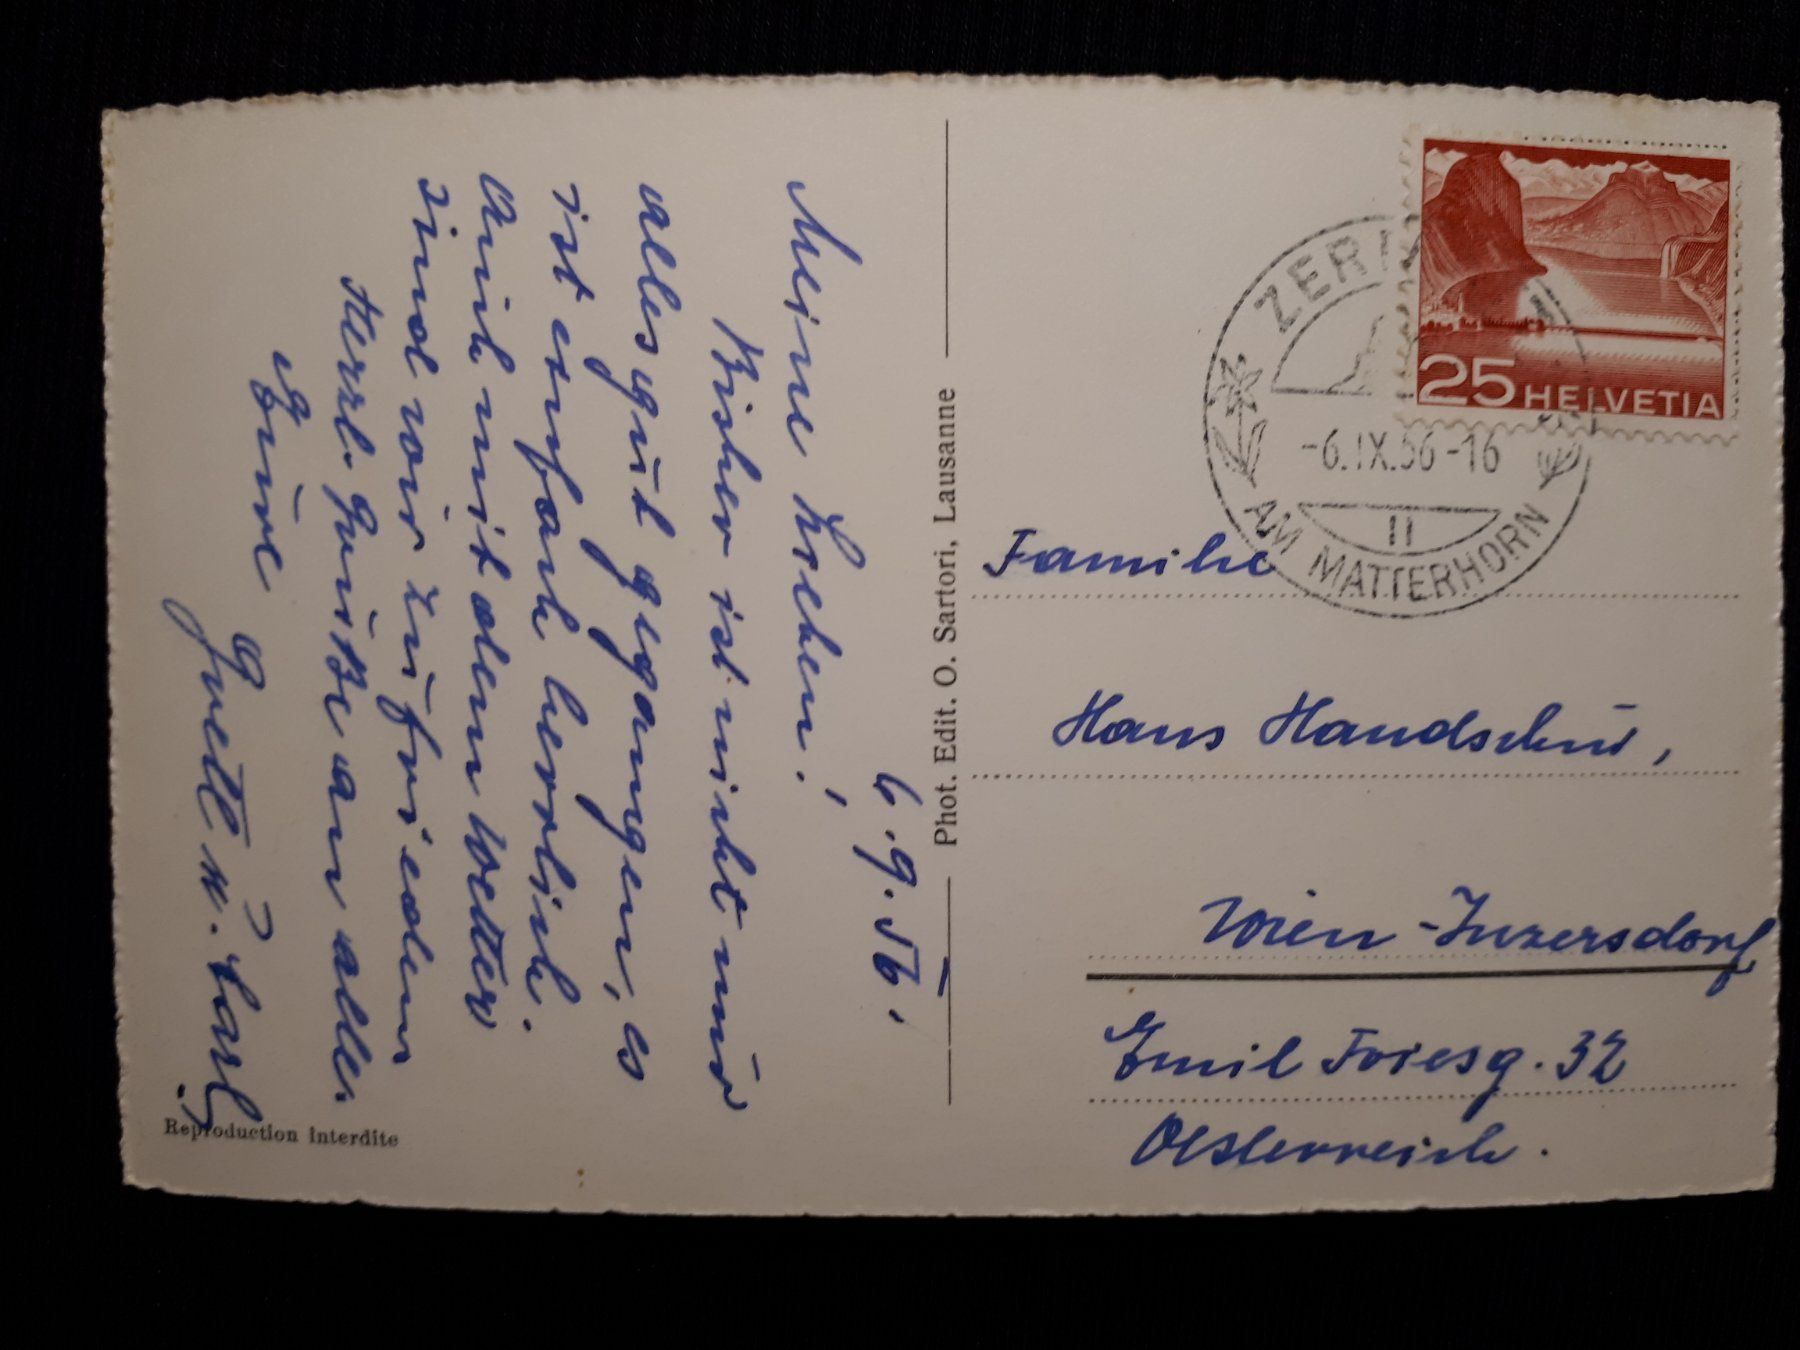 6.9.56.
Meine Lieben!
Bisher ist nicht nur
alles gut gegangen, es
ist einfach herrlich.
Auch mit dem Wetter
sind wir zufrieden
Herzl. Grüße an alle.
Eure
Gretl u. Karl
Reproduction interdite
Phot. Edit. O. Sartori, Lausanne
25 HELVETIA
ZER
-6.IX.56-16
II
AM MATTERHORN
Familie
Hans Handschur,
Wien-Inzersdorf
Emil Friesg. 32
Oesterreich.